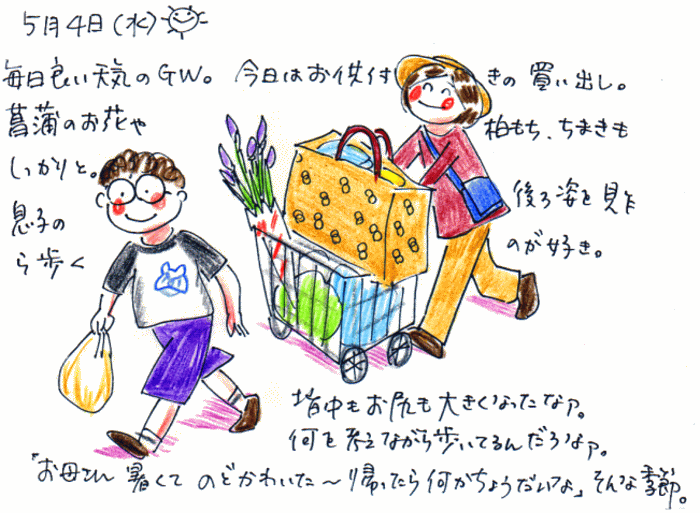 5月4日(水)
毎日良い天気のGW。 今日はお供付きの買い出し。
菖蒲のお花や 柏もち、ちまきも
しっかりと。 後ろ姿を見な
息子の のが好き。
ら歩く
背中もお尻も大きくなったなァ。
何を考えながら歩いてるんだろなァ。
「お母さん 暑くて のどかわいた〜帰ったら何かちょうだいよ」そんな季節。